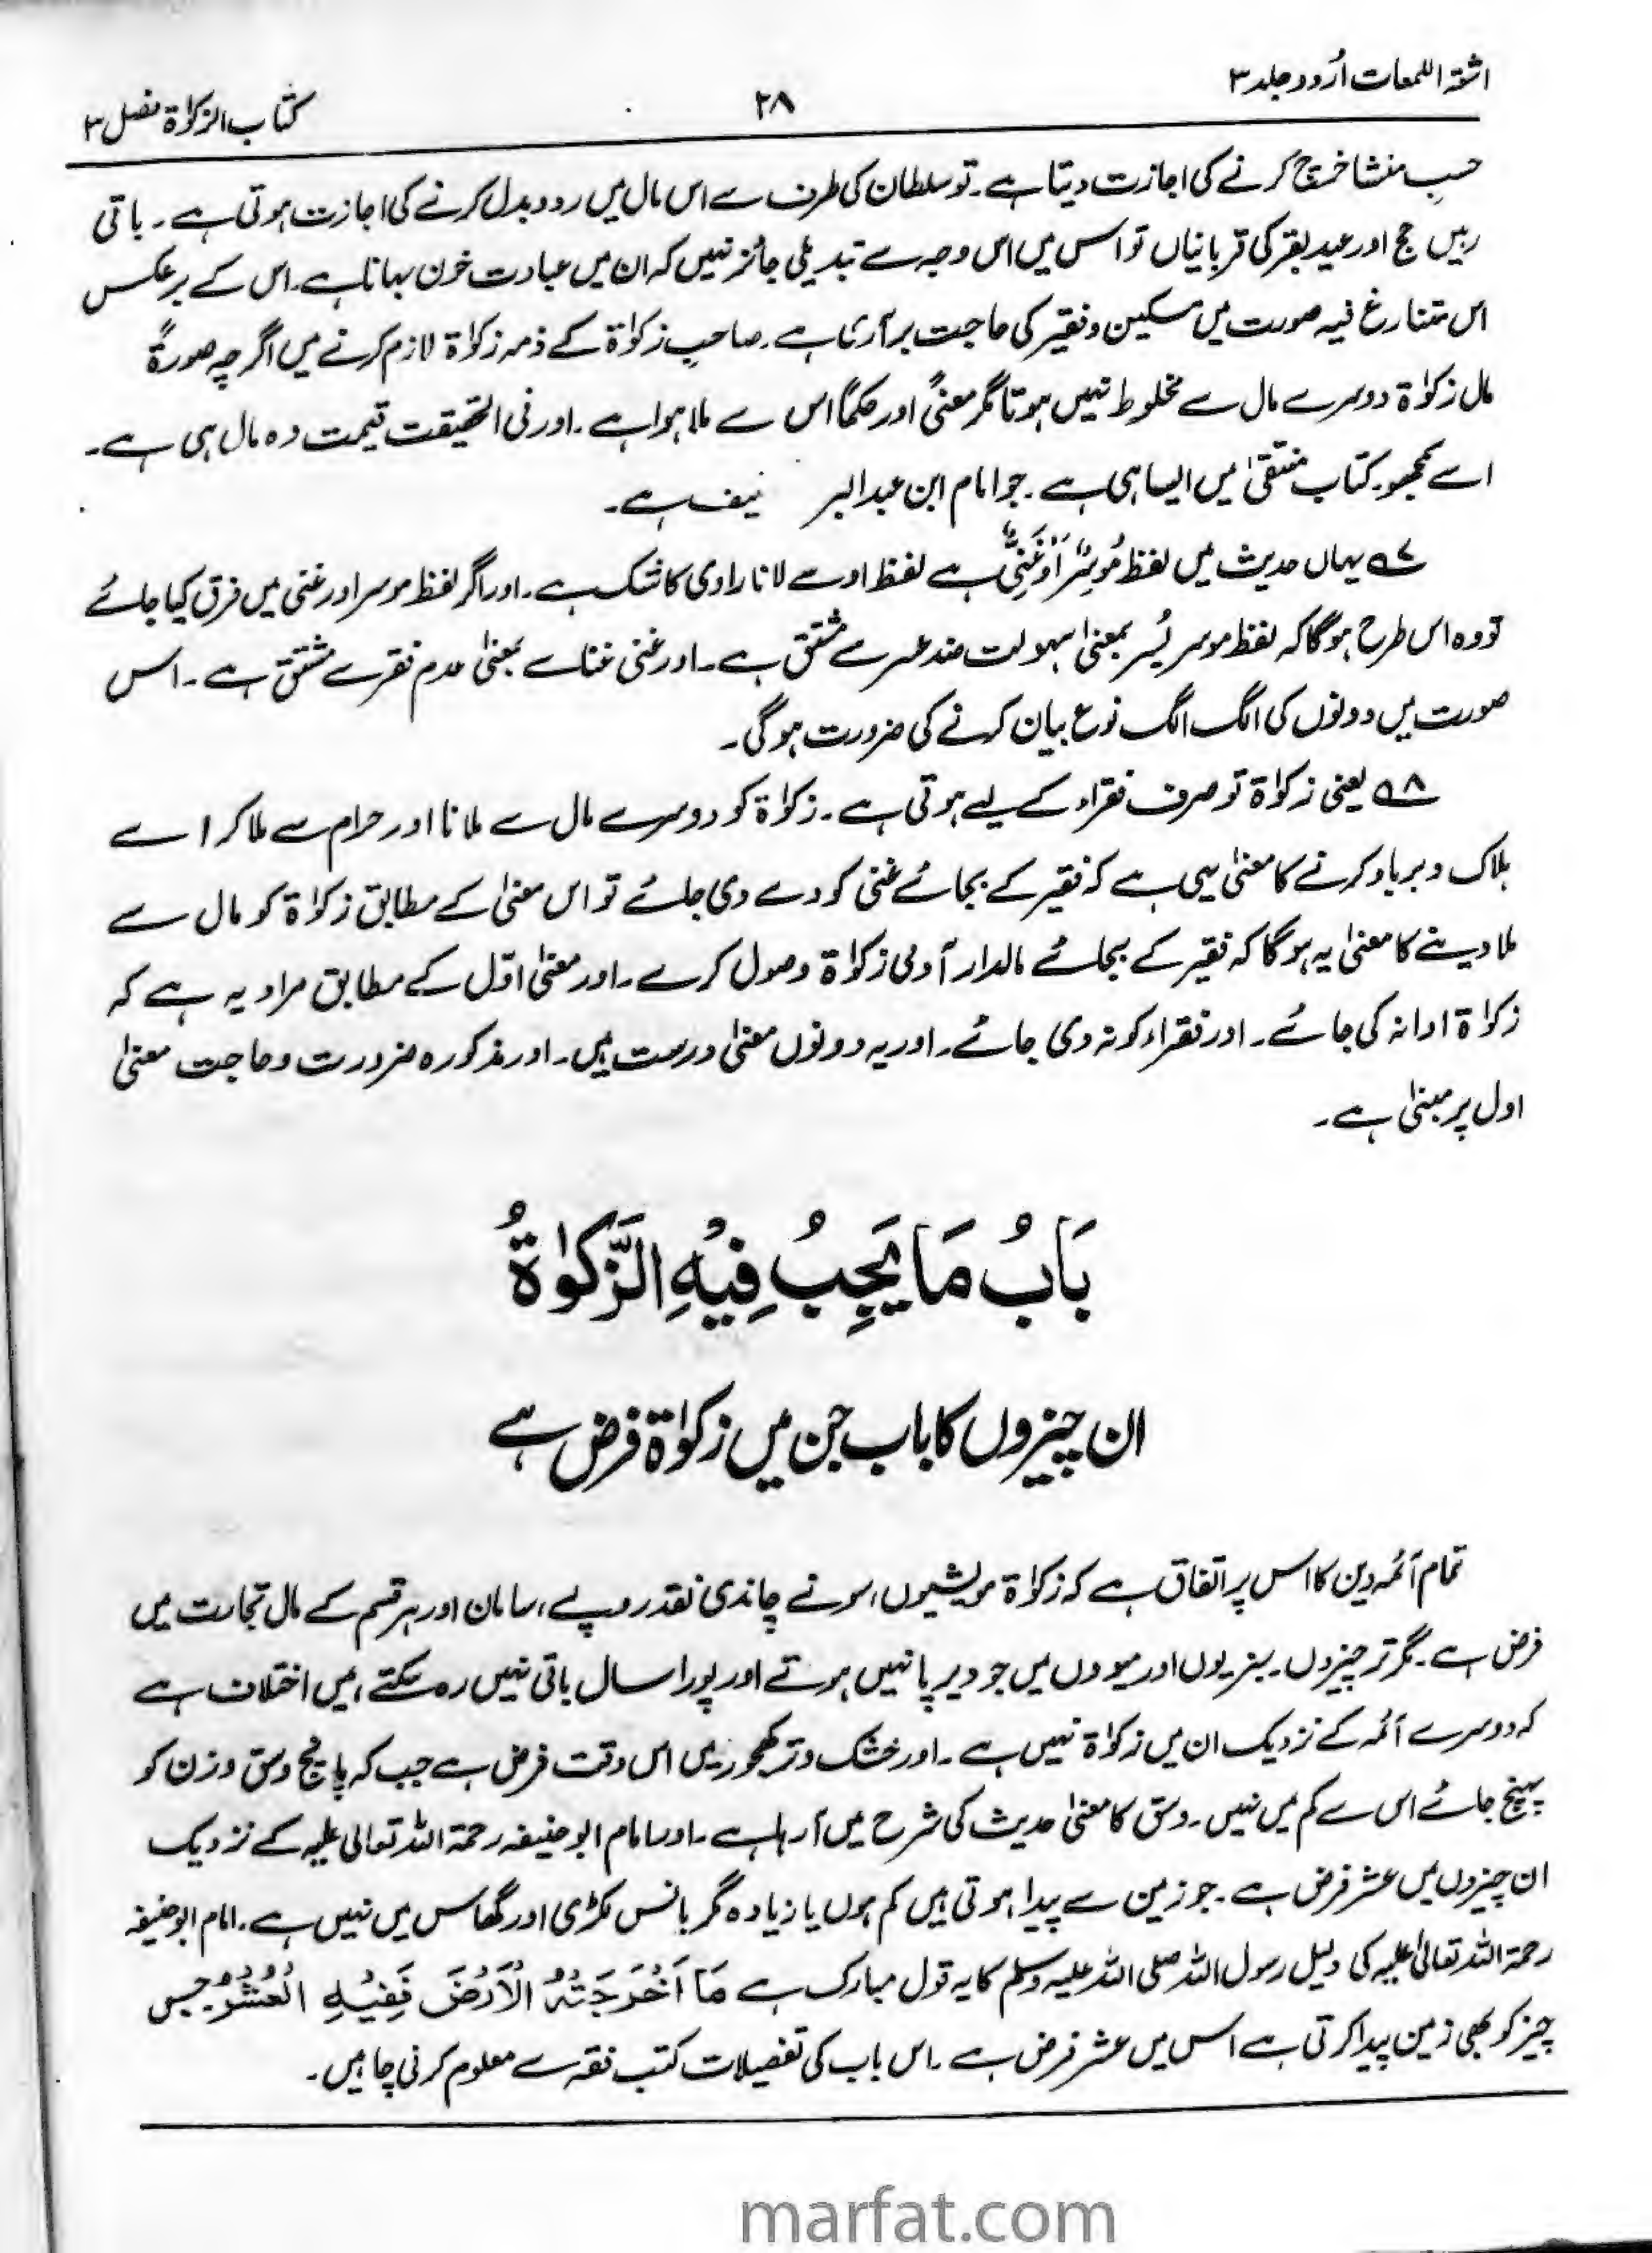 اشعۃ اللمعات اُردو جلد ۳
۲۸
کتاب الزکوٰۃ فصل ۳
حسبِ منشا خرچ کرنے کی اجازت دیتا ہے۔ تو سلطان کی طرف سے اس مال میں ردوبدل کرنے کی اجازت ہوتی ہے۔ باقی
رہیں حج اور عید بقر کی قربانیاں تو اس میں اس وجہ سے تبدیلی جائز نہیں کہ ان میں عبادت خون بہانا ہے۔ اس کے برعکس
اس متنازع فیہ صورت میں مسکین و فقیر کی حاجت برآری ہے۔ صاحبِ زکوٰۃ کے ذمہ زکوٰۃ لازم کرنے میں اگرچہ صورۃً
مال زکوٰۃ دوسرے مال سے مخلوط نہیں ہوتا مگر معنیً اور حکمًا اس سے ملا ہوا ہے۔ اور فی الحقیقت قیمت وہ مال ہی ہے۔
اسے سمجھو۔ کتاب منتقیٰ میں ایسا ہی ہے۔ جو امام ابن عبدالبر نیف ہے۔
۷؎ یہاں حدیث میں لفظ مُوْسِرٌ اَوْ غَنِیٌّ ہے لفظ او سے لانا راوی کا شک ہے۔ اور اگر لفظ موسر اور غنی میں فرق کیا جائے
تو وہ اس طرح ہوگا کہ لفظ موسر یُسر بمعنیٰ سہولت ضد عسر سے مشتق ہے۔ اور غنی غنا سے بمعنیٰ عدم فقر سے مشتق ہے۔ اس
صورت میں دونوں کی الگ الگ نوع بیان کرنے کی ضرورت ہوگی۔
۸؎ یعنی زکوٰۃ تو صرف فقراء کے لیے ہوتی ہے۔ زکوٰۃ کو دوسرے مال سے ملانا اور حرام سے ملا کر اسے
ہلاک و برباد کرنے کا معنیٰ یہی ہے کہ فقیر کے بجائے غنی کو دے دی جائے تو اس معنیٰ کے مطابق زکوٰۃ کو مال سے
ملا دینے کا معنیٰ یہ ہوگا کہ فقیر کے بجائے مالدار آدمی زکوٰۃ وصول کرے۔ اور معنیٰ اوّل کے مطابق مراد یہ ہے کہ
زکوٰۃ ادا نہ کی جائے۔ اور فقراء کو نہ دی جائے۔ اور یہ دونوں معنیٰ درست ہیں۔ اور مذکورہ ضرورت و حاجت معنیٰ
اول پر مبنیٰ ہے۔
بَابُ مَا یَجِبُ فِیْہِ الزَّکوٰۃُ
ان چیزوں کا باب جن میں زکوٰۃ فرض ہے
تمام آئمہ دین کا اس پر اتفاق ہے کہ زکوٰۃ مویشیوں، سونے چاندی نقد روپے، سامان اور ہر قسم کے مال تجارت میں
فرض ہے۔ مگر تر چیزوں۔ سبزیوں اور میووں میں جو دیرپا نہیں ہوتے اور پورا سال باقی نہیں رہ سکتے، میں اختلاف ہے
کہ دوسرے آئمہ کے نزدیک ان میں زکوٰۃ نہیں ہے۔ اور خشک و تر کھجور میں اس وقت فرض ہے جب کہ پانچ وسق وزن کو
پہنچ جائے اس سے کم میں نہیں۔ وسق کا معنیٰ حدیث کی شرح میں آ رہا ہے۔ اور امام ابو حنیفہ رحمۃ اللہ تعالیٰ علیہ کے نزدیک
ان چیزوں میں عشر فرض ہے۔ جو زمین سے پیدا ہوتی ہیں کم ہوں یا زیادہ مگر بانس لکڑی اور گھاس میں نہیں ہے۔ امام ابو حنیفہ
رحمۃ اللہ تعالیٰ علیہ کی دلیل رسول اللہ صلی اللہ علیہ وسلم کا یہ قول مبارک ہے مَا اَخْرَجَتْہُ الْاَرْضُ فَفِیْہِ الْعُشْرُ۔ جس
چیز کو بھی زمین پیدا کرتی ہے اس میں عشر فرض ہے۔ اس باب کی تفصیلات کتب فقہ سے معلوم کرنی چاہیں۔
marfat.com